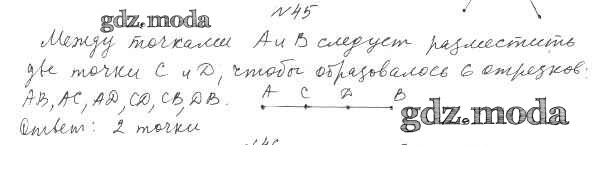 N45
gdz.moda
Между точками А и В следует разместить
две точки С и D, чтобы образовалось 6 отрезков:
АВ, АС, АD, CD, CB, DB.
A C D B
gdz.moda
Ответ: 2 точки